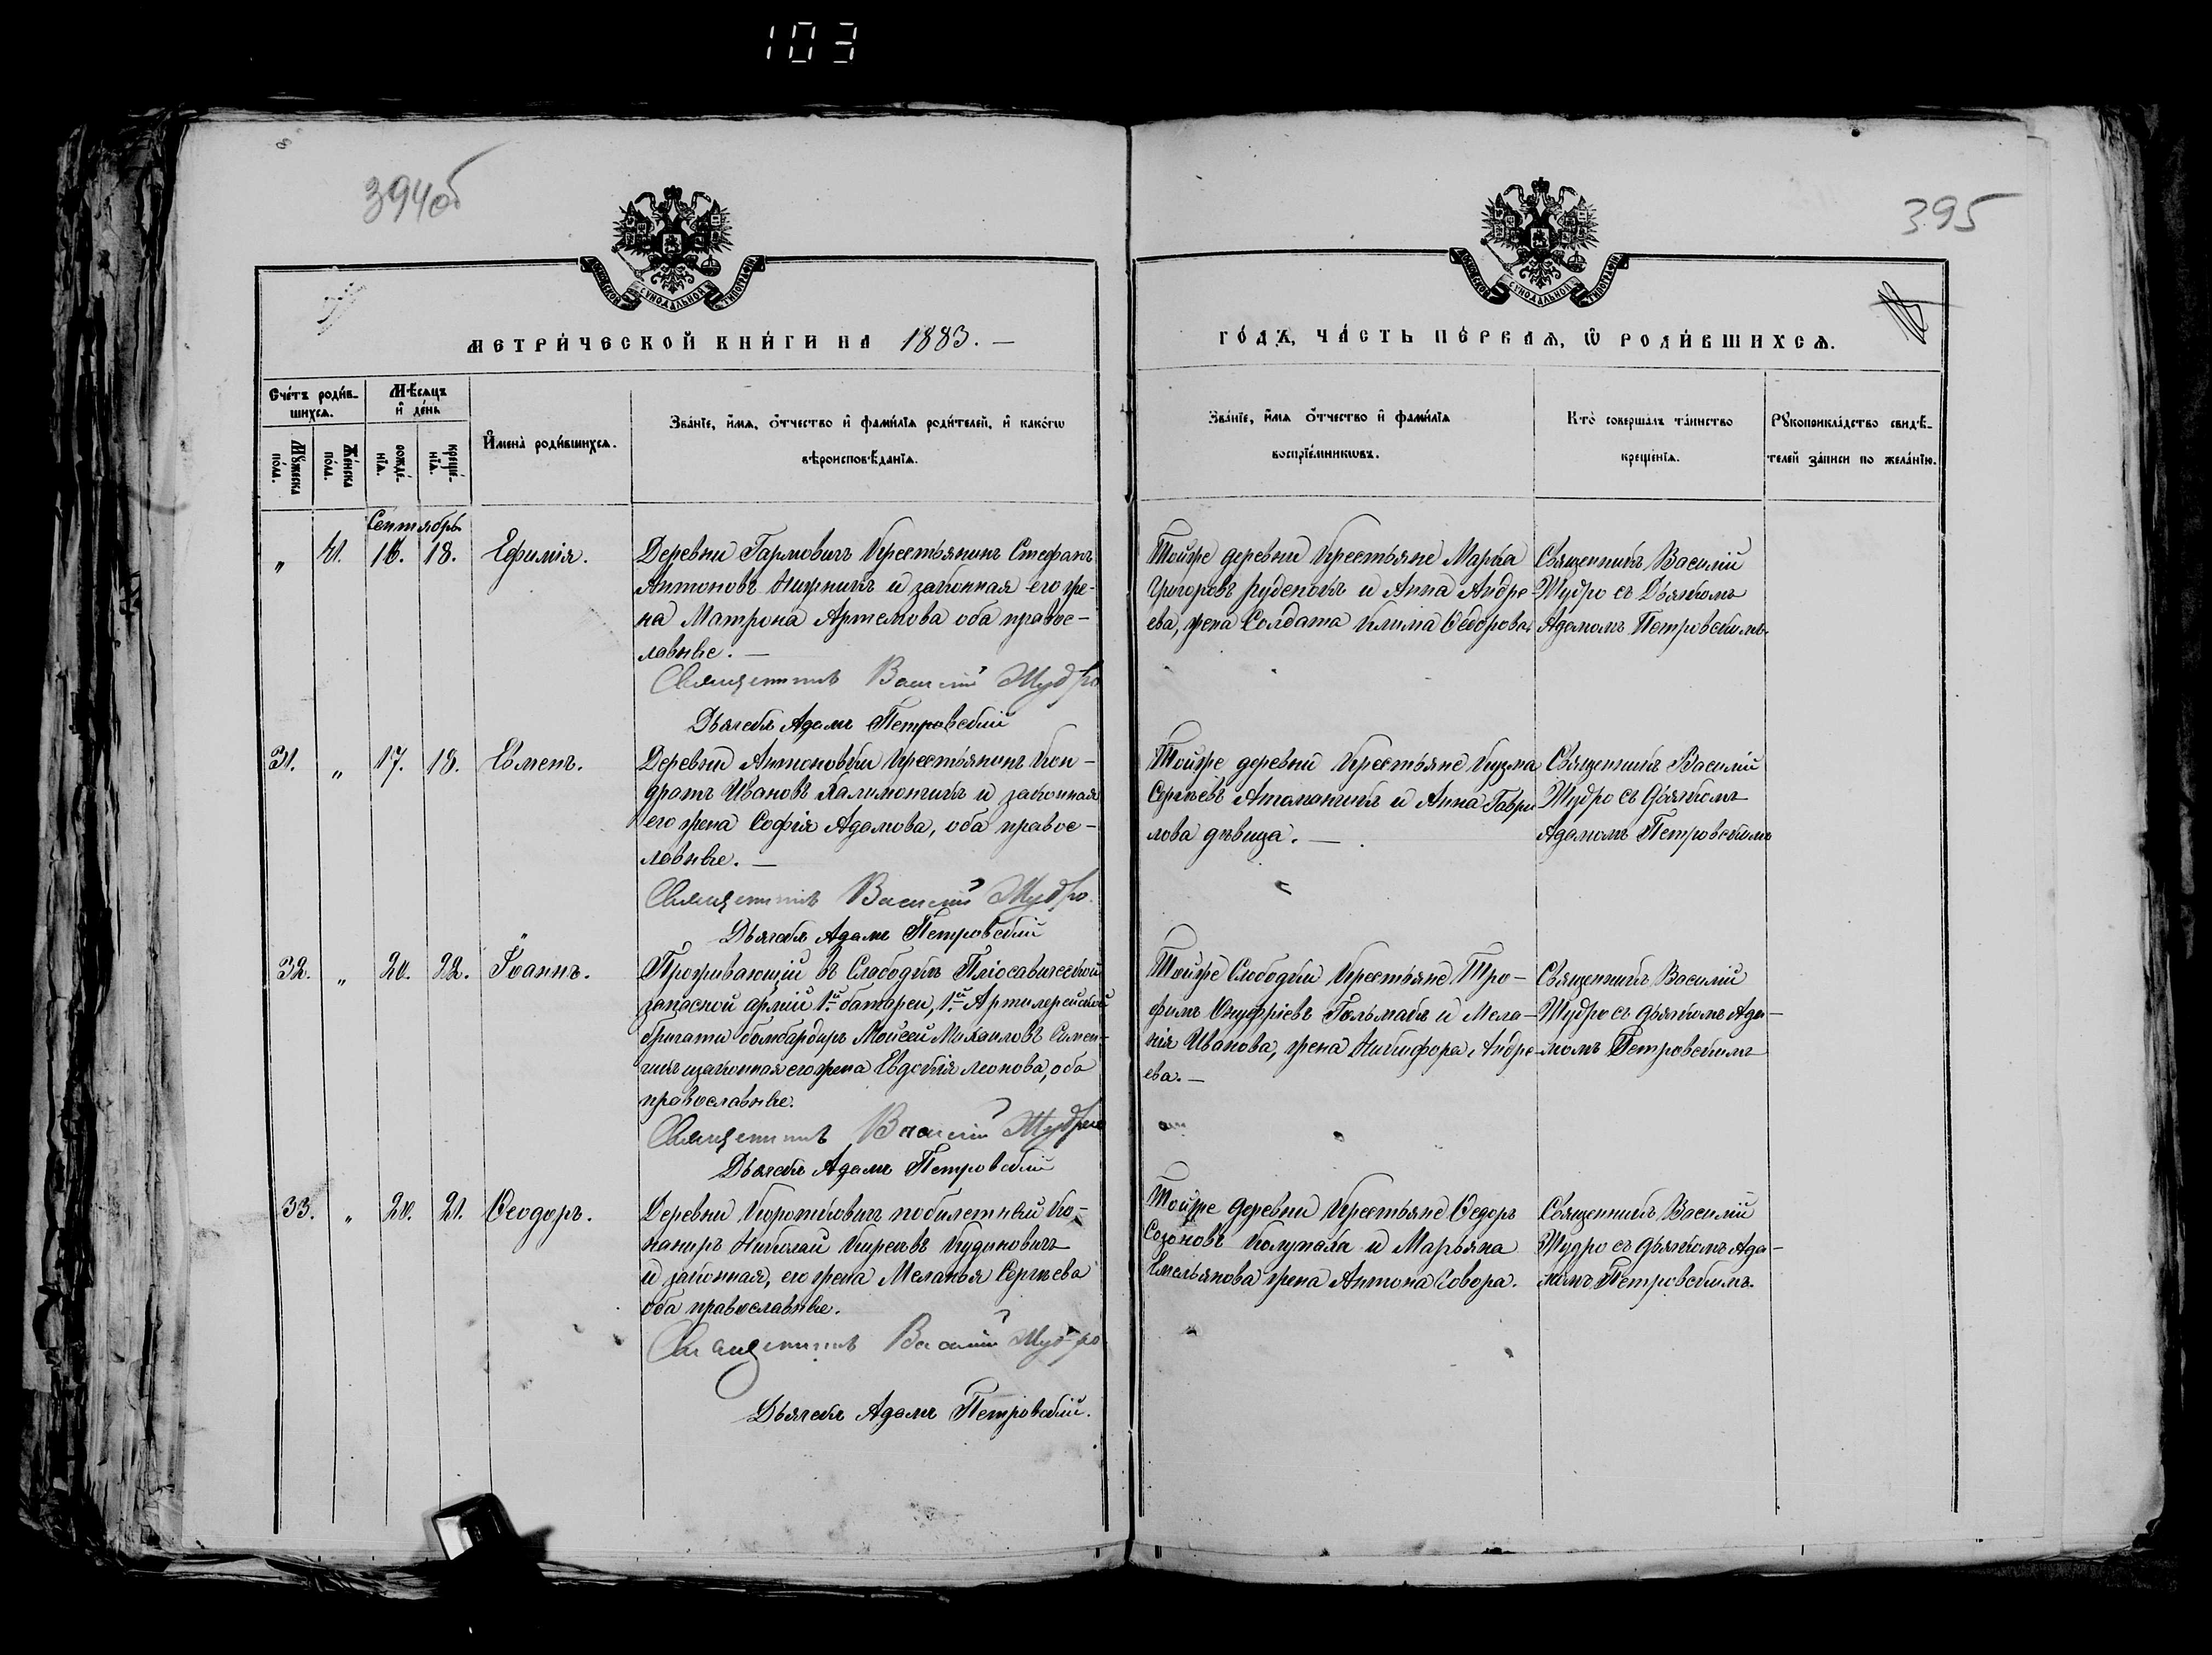 103
394об
395
МОСКОВСКОЙ СУНОДАЛЬНОЙ ТИПОГРАФІИ
МОСКОВСКОЙ СУНОДАЛЬНОЙ ТИПОГРАФІИ
МЕТРИ́ЧЕСКОЙ КНИ́ГИ НА 1883. —
ГО́ДЪ, ЧА́СТЬ ПЕ́РВАѦ, Ѿ РОДИ́ВШИХСѦ.
Сче́тъ роди́в-
шихсѧ.
Мꙋ́жеска
по́ла.
Же́нска
по́ла.
Мѣ́сѧцъ
и҆ де́нь
рожде́-
нїѧ.
креще́-
нїѧ.
И҆мена̀ роди́вшихсѧ.
Зва́нїе, и҆́мѧ, ѻ҆́тчество и҆ фами́лїѧ роди́телей, и҆ како́гѡ
вѣроисповѣ́данїѧ.
Зва́нїе, и҆́мѧ ѻ҆́тчество и҆ фами́лїѧ
воспрїе́мникѡвъ.
Кто̀ соверша́лъ та́инство
креще́нїѧ.
Рꙋкоприкла́дство свидѣ́-
телей за́писи по жела́нїю.
Сентябрь
„ 41. 16. 18. Ефимія.
Деревни Гармовичъ Крестьянинъ Стефанъ
Антоновъ и законная его же-
на Матрона Артемова оба правос-
лавные. —
Священникъ Василій Мудро
Дьячекъ Адамъ Петровскій
Тойже деревни Крестьяне Марка
Григоровъ Руденокъ и Анна Андре
ева, жена Солдата Клима Ѳедорова
Священникъ Василій
Мудро съ Дьячкомъ
Адамомъ Петровскимъ.
31. „ 17. 18. Евменъ.
Деревни Антоновки Крестьянинъ Кон-
дратъ Ивановъ Халимончикъ и законная
его жена Софія Адамова, оба правос-
лавные. —
Священникъ Василій Мудро.
Дьячекъ Адамъ Петровскій
Тойже деревни Крестьяне Кузма
Сергѣевъ Атаманчикъ и Анна Гаври
лова дѣвица. —
Священникъ Василій
Мудро съ дьячкомъ
Адамомъ Петровскимъ
32. „ 20. 22. Іоаннъ.
Проживающій въ Слободкѣ
запасной арміи 1й батареи, 1й Артилерейской
бригаты бомбардиръ Моисей Михаиловъ Симен-
чикъ и законная его жена Евдокія Леонова, оба
православные.
Священникъ Василій Мудро
Дьячекъ Адамъ Петровскій
Тойже Слободки Крестьяне Тро-
фимъ Онуфріевъ Гольмакъ и Мела-
нія Иванова, жена Никифора Андре-
ева. —
Священникъ Василій
Мудро съ дьячкомъ Ада-
момъ Петровскимъ
33. „ 20. 21. Ѳеодоръ.
Деревни Коротковичъ побилетный Ко-
нониръ Николай Киреевъ Кудиновичъ
и законная, его жена Меланья Сергѣева
оба православные.
Священникъ Василій Мудро
Дьячекъ Адамъ Петровскій.
Тойже деревни Крестьяне Ѳедоръ
Созоновъ Колупаха и Марьяна
Емельянова жена Антона Говора.
Священникъ Василій
Мудро съ дьячкомъ Ада-
момъ Петровскимъ.